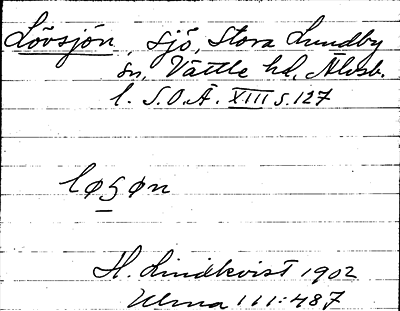 Lövsjön, sjö, Stora Lundby
sn, Vättle hd, Älvsb.
l. S.O.Ä. XIII s. 127
løsøn
H. Lindkvist 1902
Ulma 111:487